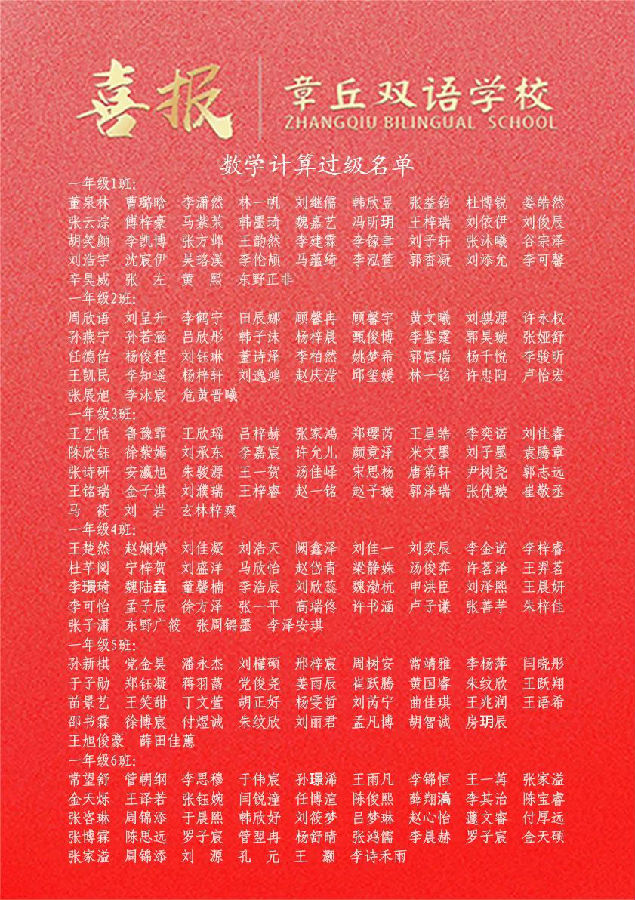 喜报
章丘双语学校
ZHANGQIU BILINGUAL SCHOOL
数学计算过级名单
一年级1班:
董泉林 曹璐晗 李潇然 林一帆 刘继儒 韩欣昱 张益铭 杜博锐 姜皓然
张云淙 傅梓豪 马紫茉 韩墨琦 魏嘉艺 冯昕玥 王梓瑞 刘依伊 刘俊辰
胡笑颜 李凯博 张方邺 王韵然 李建霖 李镓聿 刘子轩 张沐曦 谷宗泽
刘浩宇 沈宸伊 吴珞溪 李伦颉 马蕴绮 李泓萱 郭香凝 刘添允 李可馨
辛昊威 张 左 黄 熙 东野正非
一年级2班:
周欣语 刘呈升 李鹤宁 田辰娜 顾馨冉 顾馨宇 黄文曦 刘骐源 许永权
孙燕宁 孙若涵 吕欣彤 韩子沫 杨梓晨 甄俊博 李鉴霆 郭昊璇 张娅舒
任德佑 杨俊程 刘钰琳 董诗泽 李柏然 姚梦希 郭宸瑞 杨千悦 李骏昕
王凯民 李知遥 杨梓轩 刘逸鸿 赵庆滢 邱玺媛 林一铭 许忠阳 卢怡宏
张展旭 李沐宸 危黄晋曦
一年级3班:
王艺恬 鲁豫霏 王欣瑶 吕梓赫 张家鸿 郑璎芮 王呈皓 李奕诺 刘佳睿
陈欣钰 徐紫嫣 刘承东 李嘉宸 许允儿 颜竟泽 米文墨 刘子墨 袁腾章
张诗研 安瀛旭 朱骏源 王一贺 汤佳峄 宋思杨 唐第轩 尹树尧 郭志远
王铭瑞 金子淇 刘濮瑞 王梓睿 赵一铭 赵子璇 郭泽瑞 张优璇 崔敬丞
马 筱 刘 岩 玄林梓爽
一年级4班:
王楚然 赵娴婷 刘佳凝 刘浩天 阙鑫泽 刘佳一 刘奕辰 李金诺 李梓睿
杜芊阅 宁梓贺 刘盛洋 马欣怡 赵岱青 梁静姝 汤俊弈 许茗泽 王弄茗
李璟琦 魏陆垚 董馨楠 李浩辰 刘欣蕊 魏渤杭 申洪臣 刘泽熙 王晨妍
李可怡 孟子辰 徐方泽 张一平 高瑞佟 许书涵 卢子谦 张善莘 朱梓佳
张子潇 东野广筱 张周锦墨 李泽安琪
一年级5班:
孙新棋 党金昊 潘永杰 刘槿硕 邢梓宸 周树安 常靖雅 李杨萍 闫晓彤
于子勋 郑钰凝 蒋羽菡 党俊尧 姜雨辰 崔跃腾 黄国睿 朱纹欣 王跃翔
苗景艺 王笑甜 丁文萱 胡正好 杨雯哲 刘芮宁 曲佳琪 王兆润 王语希
邵书霖 徐博宸 付煜诚 朱纹欣 刘雨君 孟凡博 胡智诚 房玥辰
王旭俊豪 薛田佳蕙
一年级6班:
常望舒 管朝纲 李思穆 于伟宸 孙璟浠 王雨凡 李锦恒 王一苒 张家溢
金天烁 王译若 张钰婉 闫锐潼 任博渲 陈俊熙 韩翔满 李其治 陈宝睿
张容琳 周锦添 于晨熙 韩欣妤 刘筱梦 吕梦琳 赵心怡 董文睿 付厚远
张博霖 陈思远 罗子宸 管翌冉 杨舒晴 张鸿儒 李晨赫 罗子宸 金天硕
张家溢 周锦添 刘 源 孔 元 王 灏 李诗禾雨